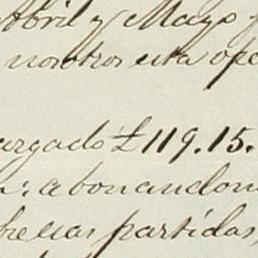 Abril y Mayo
nosotros esta ope
argado £119.15.
abonandon
partidas,